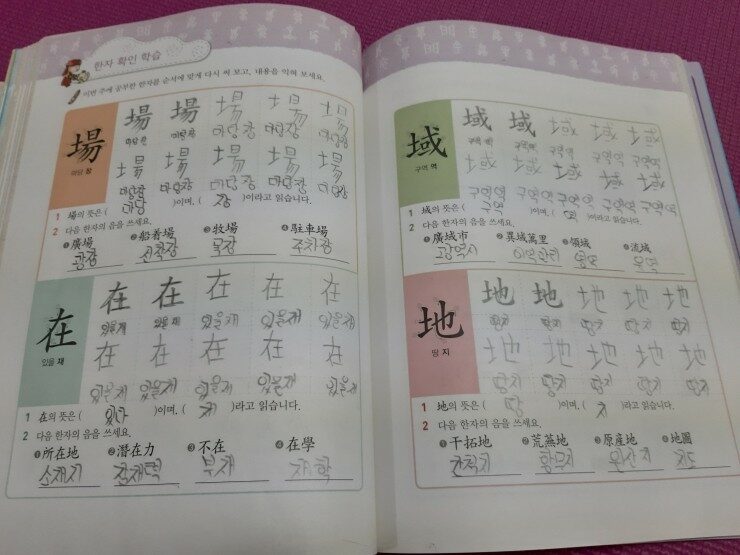 한자 확인 학습
이번 주에 공부한 한자를 순서에 맞게 다시 써 보고, 내용을 익혀 보세요.
場 場 場 場 場 場
마당 장 마당장 마당장 마당장 마당장
場 場 場 場 場
마당 장
마당장 마당장 마당장 마당장 마당장
1 場의 뜻은 ( 마당 )이며, ( 장 )이라고 읽습니다.
2 다음 한자의 음을 쓰세요.
❶廣場 ❷船着場 ❸牧場 ❹駐車場
광장 선착장 목장 주차장
在 在 在 在 在 在
있을 재 있을 재 있을재 있을재 있을재
在 在 在 在 在
있을 재
있을재 있을재 있을재 있을재 있을재
1 在의 뜻은 ( 있다 )이며, ( 재 )라고 읽습니다.
2 다음 한자의 음을 쓰세요.
❶所在地 ❷潛在力 ❸不在 ❹在學
소재지 잠재력 부재 재학
域 域 域 域 域 域
구역 역 구역 역 구역역 구역역 구역역
域 域 域 域 域
구역 역
구역역 구역역 구역역 구역역 구역역
1 域의 뜻은 ( 구역 )이며, ( 역 )이라고 읽습니다.
2 다음 한자의 음을 쓰세요.
❶廣域市 ❷異域萬里 ❸領域 ❹流域
광역시 이역만리 영역 유역
地 地 地 地 地 地
땅 지 땅 지 땅지 땅지 땅지
地 地 地 地 地
땅 지
땅지 땅지 땅지 땅지 땅지
1 地의 뜻은 ( 땅 )이며, ( 지 )라고 읽습니다.
2 다음 한자의 음을 쓰세요.
❶干拓地 ❷荒蕪地 ❸原産地 ❹地圖
간척지 황무지 원산지 지도